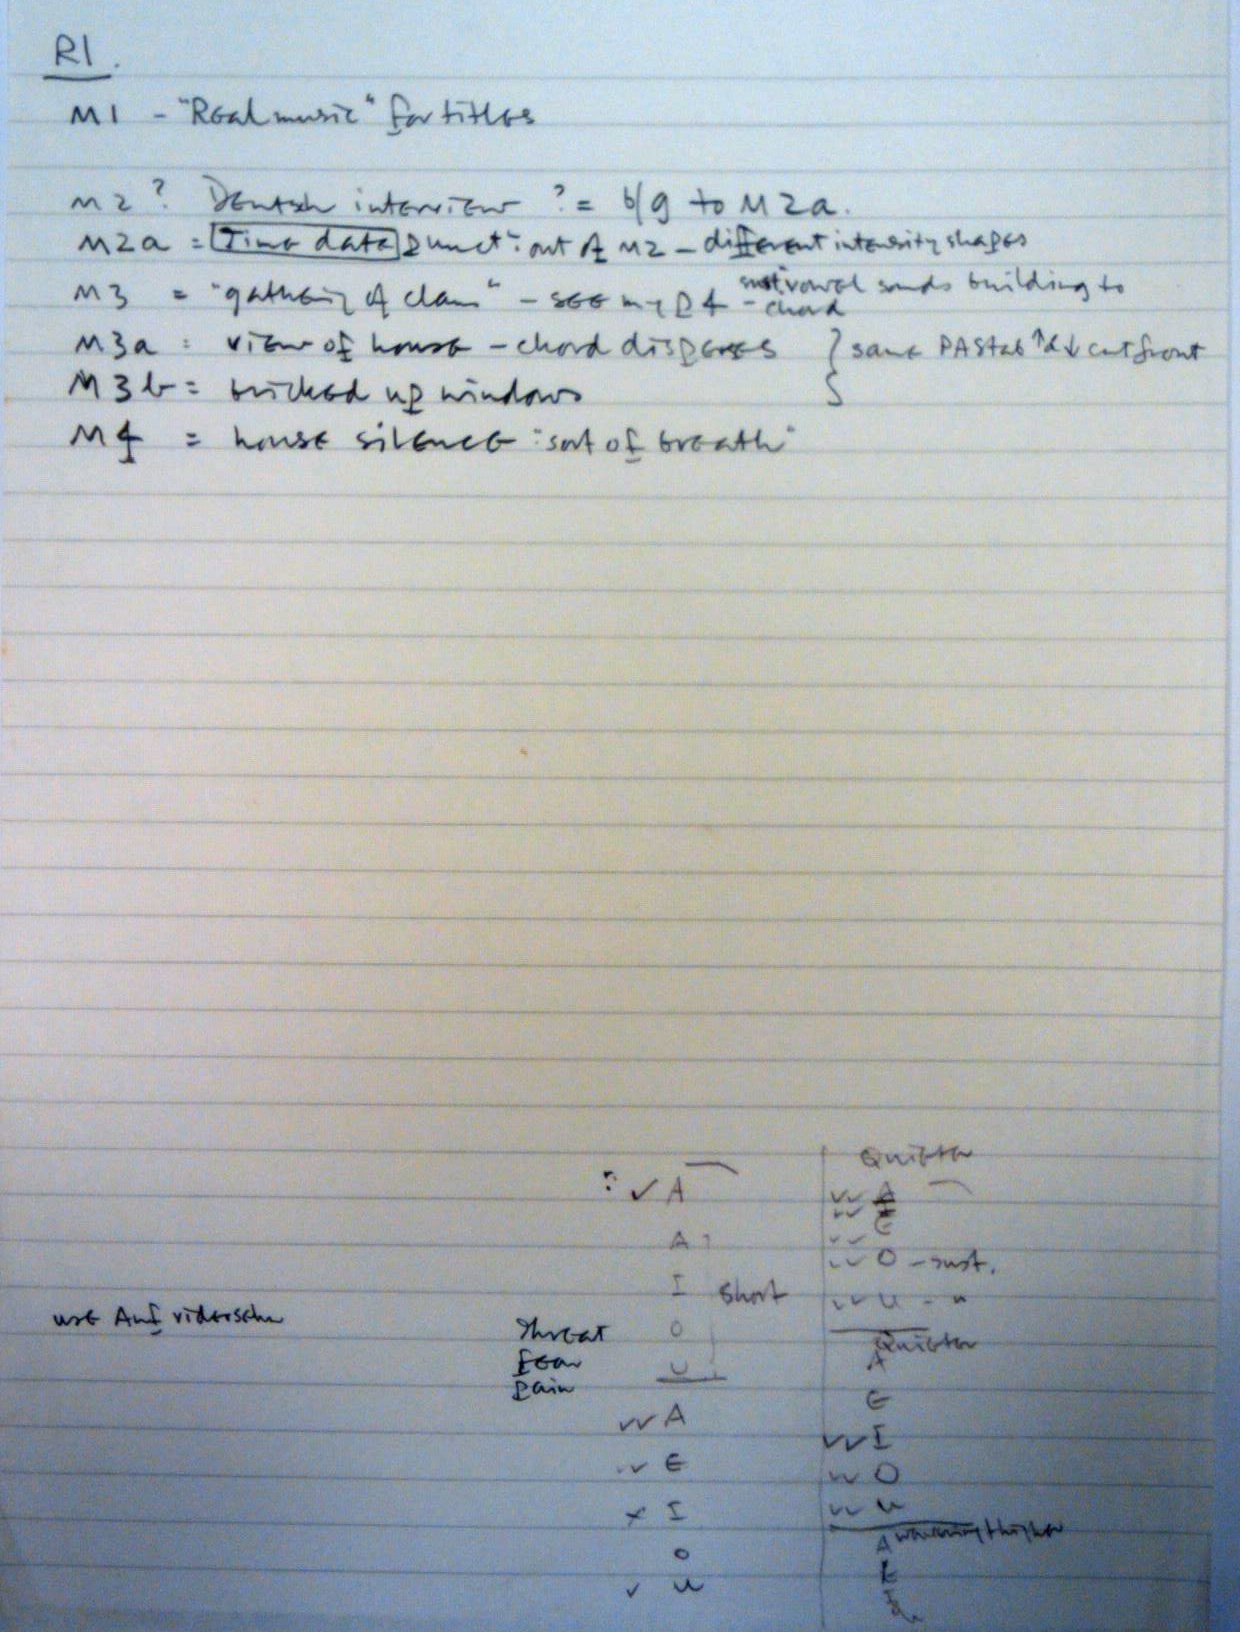 R1.
M1 - "Real music" for titles
M2? Deutsch interview ? = b/g to M2a.
M2a = Time data punct: out of M2 - different intensity shapes
M3 = "gathering of clan" - see my p 4 - vowel sounds building to
chord
M3a = view of house - chord disperses } same
M3b = bricked up windows
M4 = house silence "sort of breath"
Quieter
✓ A
✓✓ A
E
A
✓✓ O - sust.
I short
✓✓ U - "
use Auf vidersehn
Threat
O
fear
U
pain
Quieter
A
✓✓ A
E
✓✓ E
✓✓ I
x I
✓✓ O
O
✓✓ U
✓ U
A
E